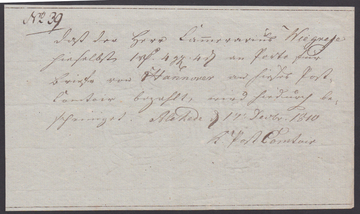 No 39
daß der Herr Cammerarius
hieselbst 4 an Porto für
Briefe von Hannover an hiesiges Post
Comtoir bezahlt, wird hiedurch be
scheiniget. 17 Decbr. 1810
Post Comtoir